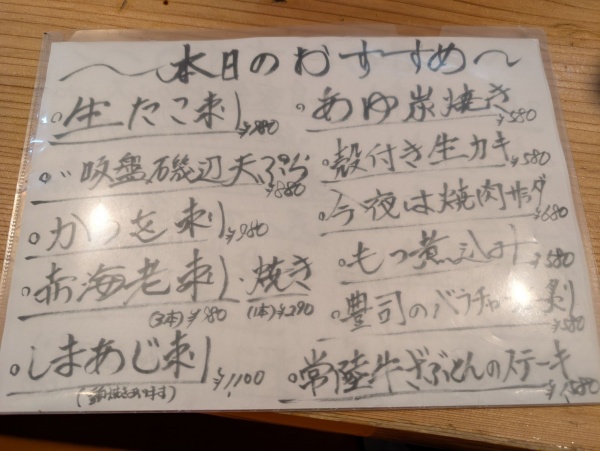 ～本日のおすすめ～
○生たこ刺し ¥980
○〃吸盤磯辺天ぷら ¥880
○かつを刺し ¥980
○赤海老刺し・焼き
(3本)¥980 (1本)¥290
○しまあじ刺し ¥1,100
○あゆ炭焼き ¥580
○殻付き生カキ ¥580
○今夜は焼肉サラダ ¥680
○もつ煮込み ¥580
○豊司のバラチャーシュー
○常陸牛ざぶとんのステーキ ¥1,580